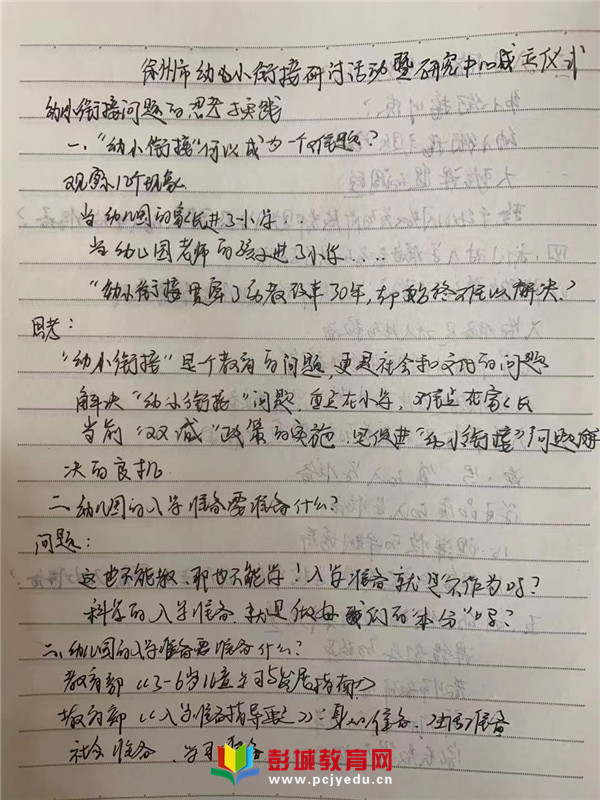 徐州市幼小衔接研讨活动暨研究中心成立仪式
幼小衔接问题的思考与实践
一、“幼小衔接”何以成为一个难题？
观察几个现象
当幼儿园的家长进了小学...
当幼儿园老师的孩子进了小学....
“幼小衔接贯穿了幼教改革30年，却始终难以解决？
思考：
“幼小衔接”是个教育的问题，更是社会和文化的问题
解决“幼小衔接”问题，重点在小学，难点在家长
当前“双减”政策的实施，是促进“幼小衔接”问题解
决的良机
二、幼儿园的入学准备要准备什么？
问题：
这也不能教，那也不能学！入学准备就是不作为吗？
科学的入学准备，就是做好我们的“本分”吗？
二、幼儿园的入学准备要准备什么？
教育部《3-6岁儿童学习与发展指南》
教育部《入学准备指导要点》：身心准备、生活准备
社会准备、学习准备
彭城教育网
www.pcjyedu.cn